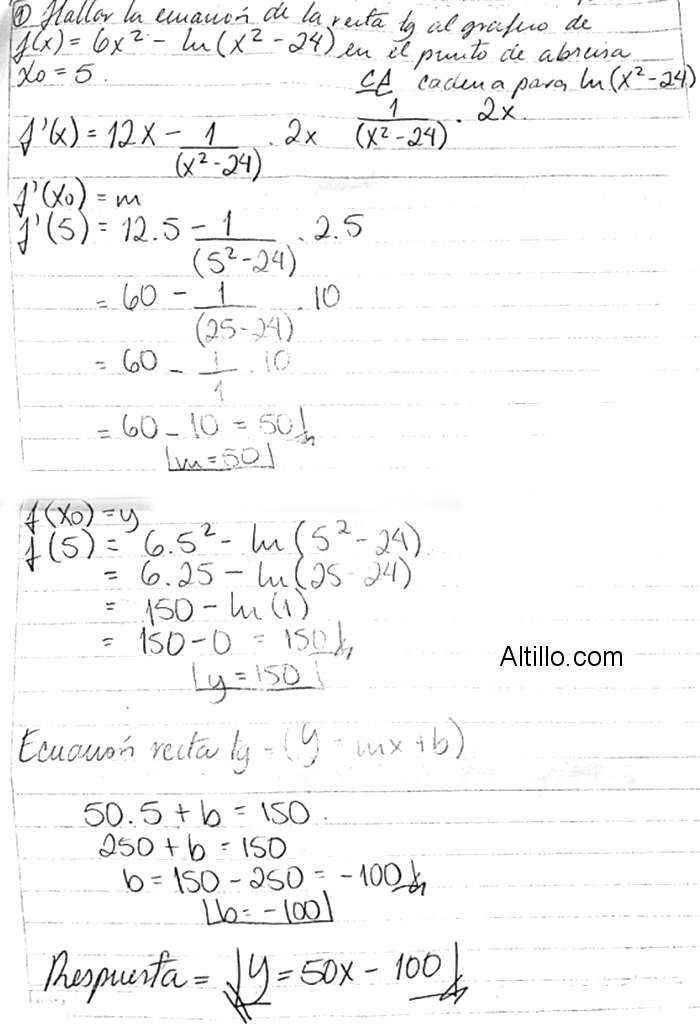 ① Hallar la ecuación de la recta tg al grafico de
f(x) = 6x² - ln(x² - 24) en el punto de abscisa
x₀ = 5.
CA cadena para ln(x² - 24)
1/(x² - 24) . 2x
f'(x) = 12x - 1/(x² - 24) . 2x
f'(x₀) = m
f'(5) = 12.5 - 1/(5² - 24) . 2.5
= 60 - 1/(25 - 24) . 10
= 60 - 1/1 . 10
= 60 - 10 = 50
m = 50
f(x₀) = y
f(5) = 6.5² - ln(5² - 24)
= 6.25 - ln(25 - 24)
= 150 - ln(1)
= 150 - 0 = 150
y = 150
Altillo.com
Ecuación recta tg = (y = mx + b)
50.5 + b = 150.
250 + b = 150
b = 150 - 250 = -100
b = -100
Respuesta = y = 50x - 100